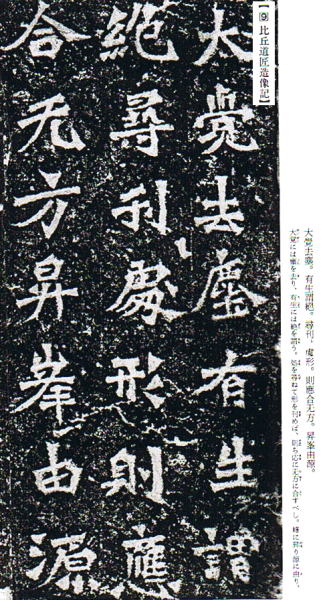 【9】比丘道匠造像記
大覺去塵有生謂
絕尋刊處形則應
合无方昇峯由源
大覚去塵。有生謂絶。尋刊。處形。則應合无方。昇峯由源。
大覚には塵を去り、有生には絶を謂う。処を尋ねて形を刊めば、則ち応に无方に合すべし。峰に昇り源に由り、